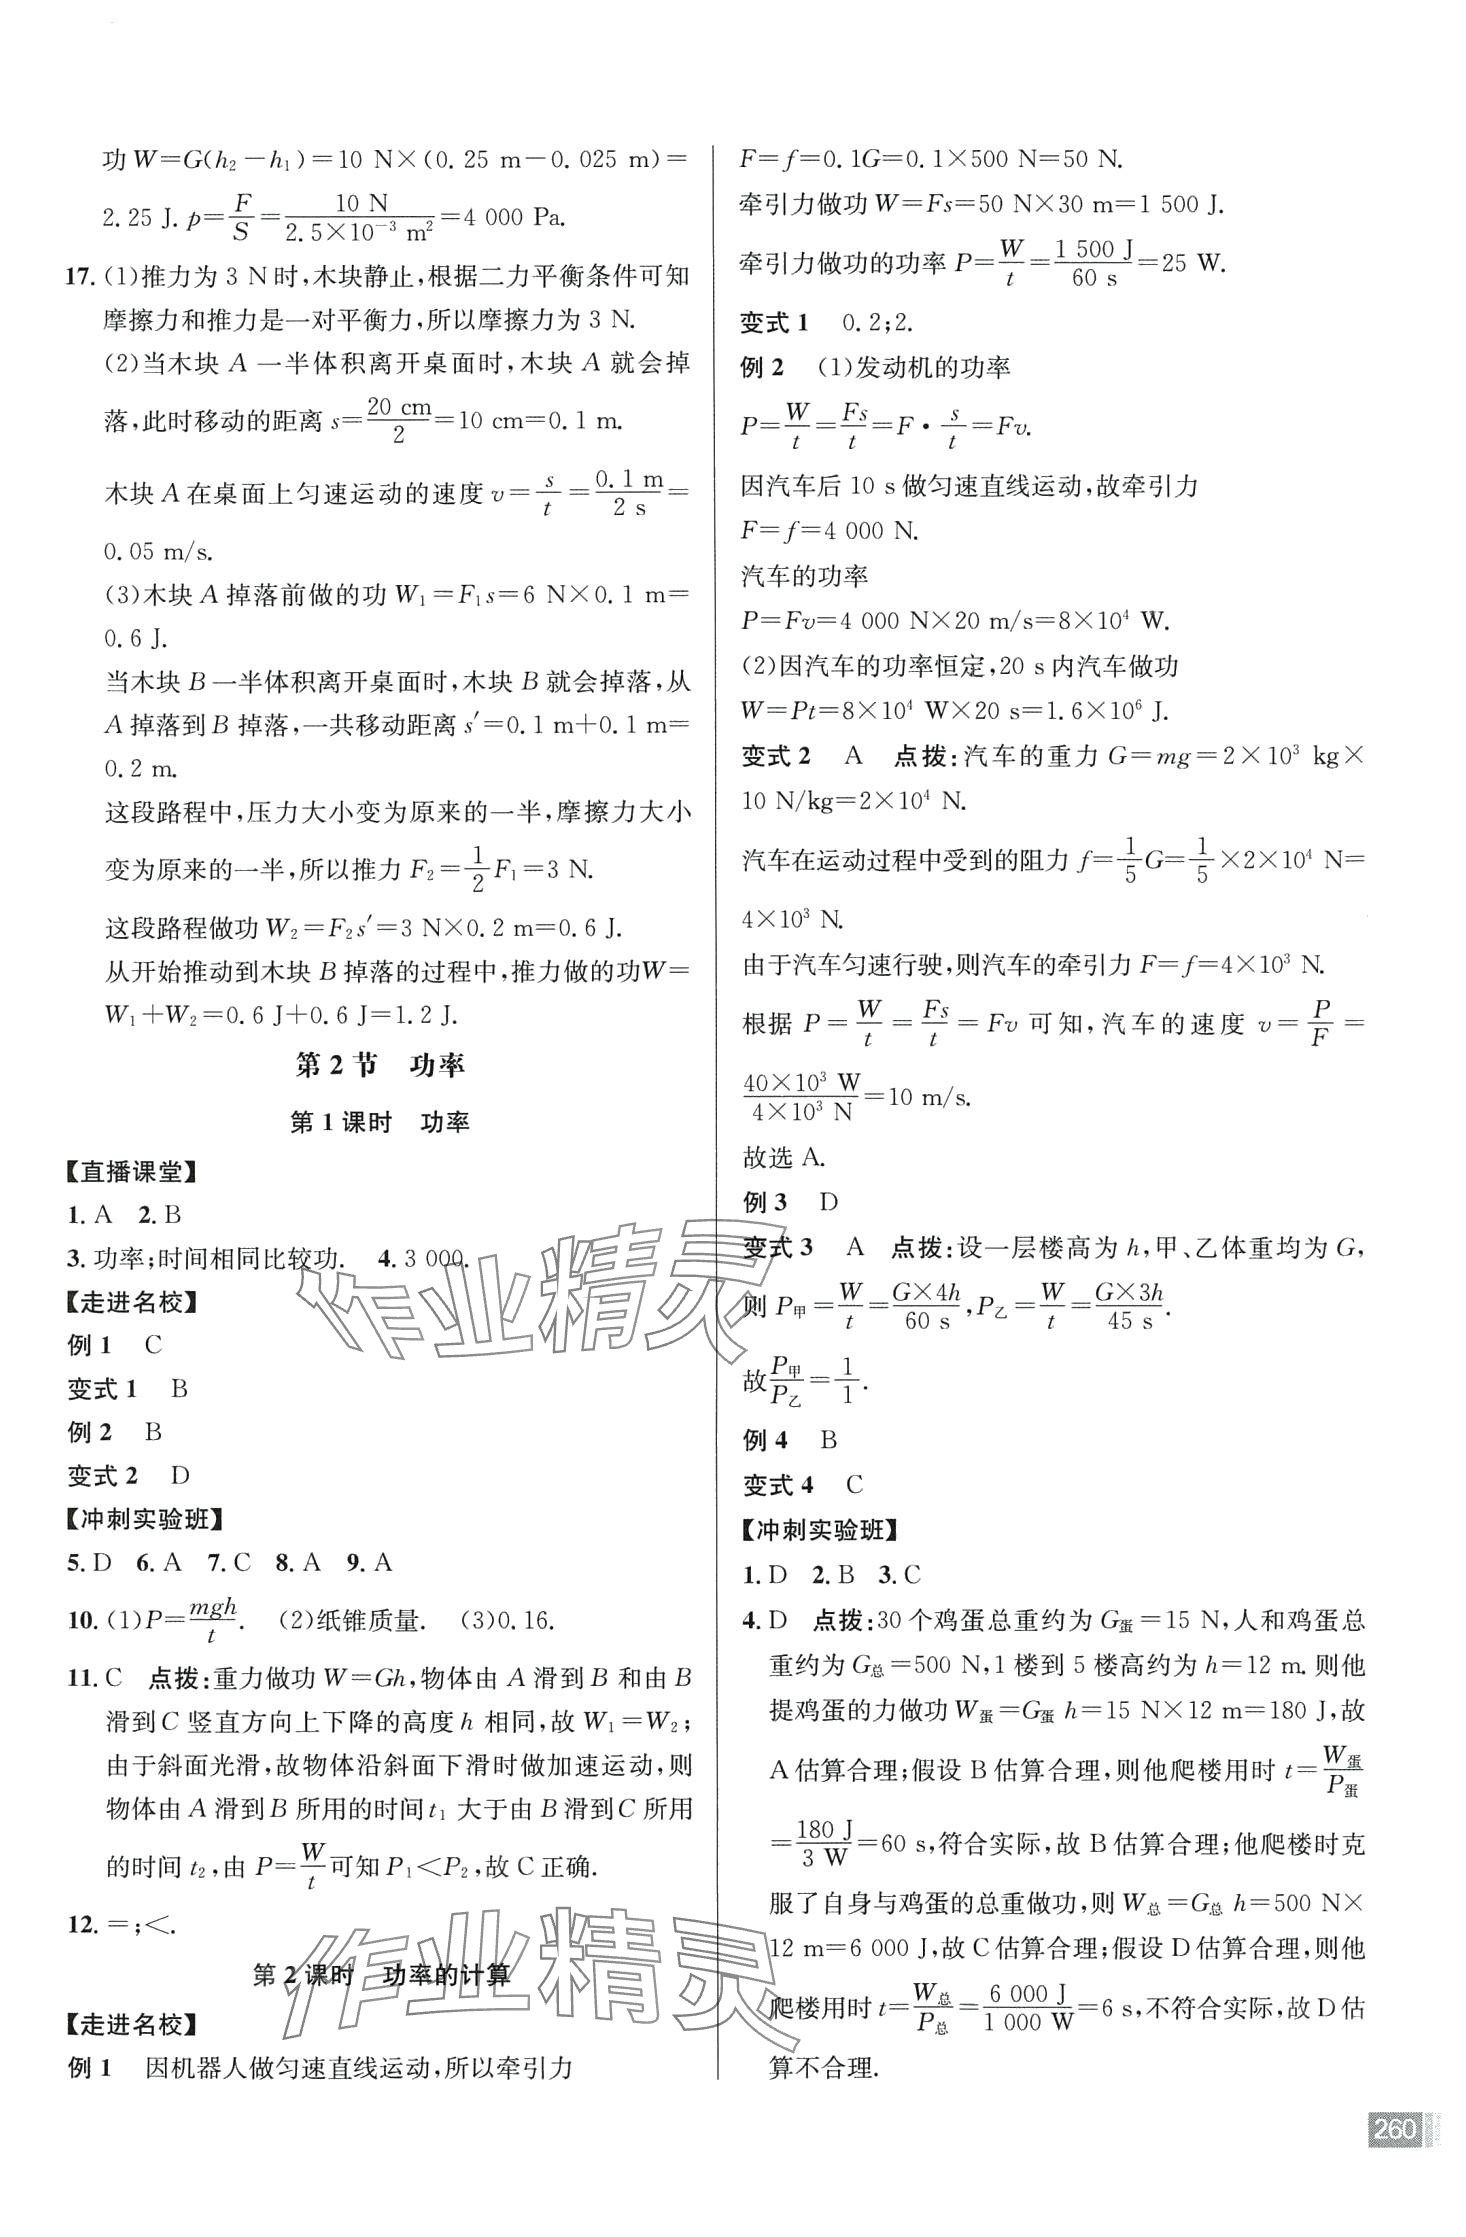 功W=G(h₂-h₁)=10 N×(0.25 m-0.025 m)=
2.25 J. p=F/S=10 N/2.5×10⁻³ m²=4 000 Pa.
17. (1)推力为 3 N时,木块静止,根据二力平衡条件可知
摩擦力和推力是一对平衡力,所以摩擦力为 3 N.
(2)当木块 A 一半体积离开桌面时,木块 A 就会掉
落,此时移动的距离 s=20 cm/2=10 cm=0.1 m.
木块 A 在桌面上匀速运动的速度 v=s/t=0.1 m/2 s=
0.05 m/s.
(3)木块 A 掉落前做的功 W₁=F₁s=6 N×0.1 m=
0.6 J.
当木块 B 一半体积离开桌面时,木块 B 就会掉落,从
A 掉落到 B 掉落,一共移动距离 s′=0.1 m+0.1 m=
0.2 m.
这段路程中,压力大小变为原来的一半,摩擦力大小
变为原来的一半,所以推力 F₂=1/2F₁=3 N.
这段路程做功 W₂=F₂s′=3 N×0.2 m=0.6 J.
从开始推动到木块 B 掉落的过程中,推力做的功W=
W₁+W₂=0.6 J+0.6 J=1.2 J.
第 2 节 功率
第 1 课时 功率
【直播课堂】
1. A 2. B
3. 功率;时间相同比较功. 4. 3 000.
【走进名校】
例 1 C
变式 1 B
例 2 B
变式 2 D
【冲刺实验班】
5. D 6. A 7. C 8. A 9. A
10. (1)P=mgh/t. (2)纸锥质量. (3)0.16.
11. C 点拨:重力做功 W=Gh,物体由 A 滑到 B 和由 B
滑到 C 竖直方向上下降的高度 h 相同,故 W₁=W₂;
由于斜面光滑,故物体沿斜面下滑时做加速运动,则
物体由 A 滑到 B 所用的时间 t₁ 大于由 B 滑到 C 所用
的时间 t₂,由 P=W/t可知 P₁<P₂,故 C 正确.
12. =;<.
第 2 课时 功率的计算
【走进名校】
例 1 因机器人做匀速直线运动,所以牵引力
F=f=0.1G=0.1×500 N=50 N.
牵引力做功 W=Fs=50 N×30 m=1 500 J.
牵引力做功的功率 P=W/t=1 500 J/60 s=25 W.
变式 1 0.2;2.
例 2 (1)发动机的功率
P=W/t=Fs/t=F·s/t=Fv.
因汽车后 10 s 做匀速直线运动,故牵引力
F=f=4 000 N.
汽车的功率
P=Fv=4 000 N×20 m/s=8×10⁴ W.
(2)因汽车的功率恒定,20 s内汽车做功
W=Pt=8×10⁴ W×20 s=1.6×10⁶ J.
变式 2 A 点拨:汽车的重力 G=mg=2×10³ kg×
10 N/kg=2×10⁴ N.
汽车在运动过程中受到的阻力 f=1/5G=1/5×2×10⁴ N=
4×10³ N.
由于汽车匀速行驶,则汽车的牵引力 F=f=4×10³ N.
根据 P=W/t=Fs/t=Fv 可知,汽车的速度 v=P/F=
40×10³ W/4×10³ N=10 m/s.
故选 A.
例 3 D
变式 3 A 点拨:设一层楼高为 h,甲、乙体重均为 G,
则 P甲=W/t=G×4h/60 s,P乙=W/t=G×3h/45 s.
故P甲/P乙=1/1.
例 4 B
变式 4 C
【冲刺实验班】
1. D 2. B 3. C
4. D 点拨:30 个鸡蛋总重约为 G蛋=15 N,人和鸡蛋总
重约为 G总=500 N,1 楼到 5 楼高约为 h=12 m.则他
提鸡蛋的力做功 W蛋=G蛋 h=15 N×12 m=180 J,故
A 估算合理;假设 B 估算合理,则他爬楼用时 t=W蛋/P蛋
=180 J/3 W=60 s,符合实际,故 B 估算合理;他爬楼时克
服了自身与鸡蛋的总重做功,则 W总=G总 h=500 N×
12 m=6 000 J,故 C 估算合理;假设 D 估算合理,则他
爬楼用时 t=W总/P总=6 000 J/1 000 W=6 s,不符合实际,故 D 估
算不合理.
260
作业精灵
作业精灵